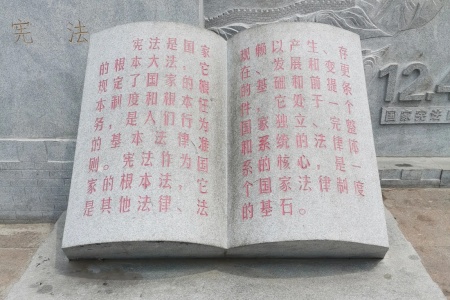 宪法
宪法是国家
的根本大法,它
规定了国家的根
本制度和根本任
务,是人们行为
的基本法律准
则。宪法作为国
家的根本法,它
是其他法律、法
产生、存
在、发展和变更
的基础和前提条
件,它处于一个
国家独立、完整
和系统的法律体
系的核心,是一
个国家法律制度
的基石。
12.4
国家宪法